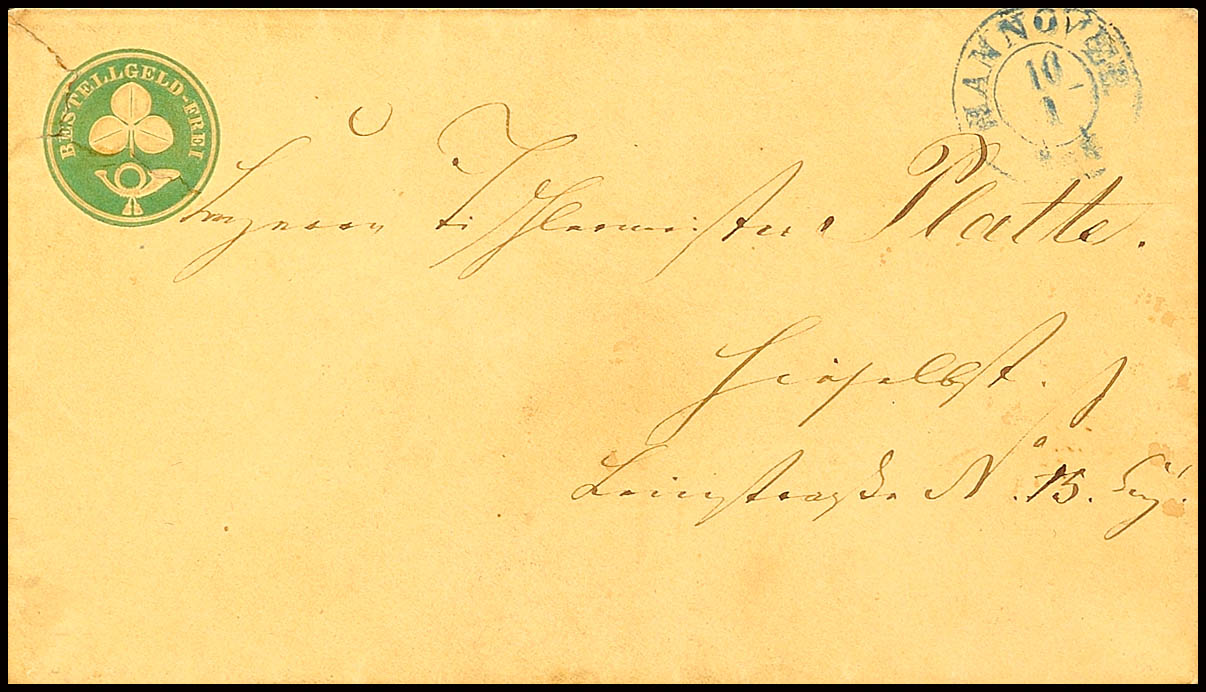 BESTELLGELD-FREI
HANNOVER
10
1
Tischlermeister Platte.
Hieselbst.
Leinstraße No. 15.